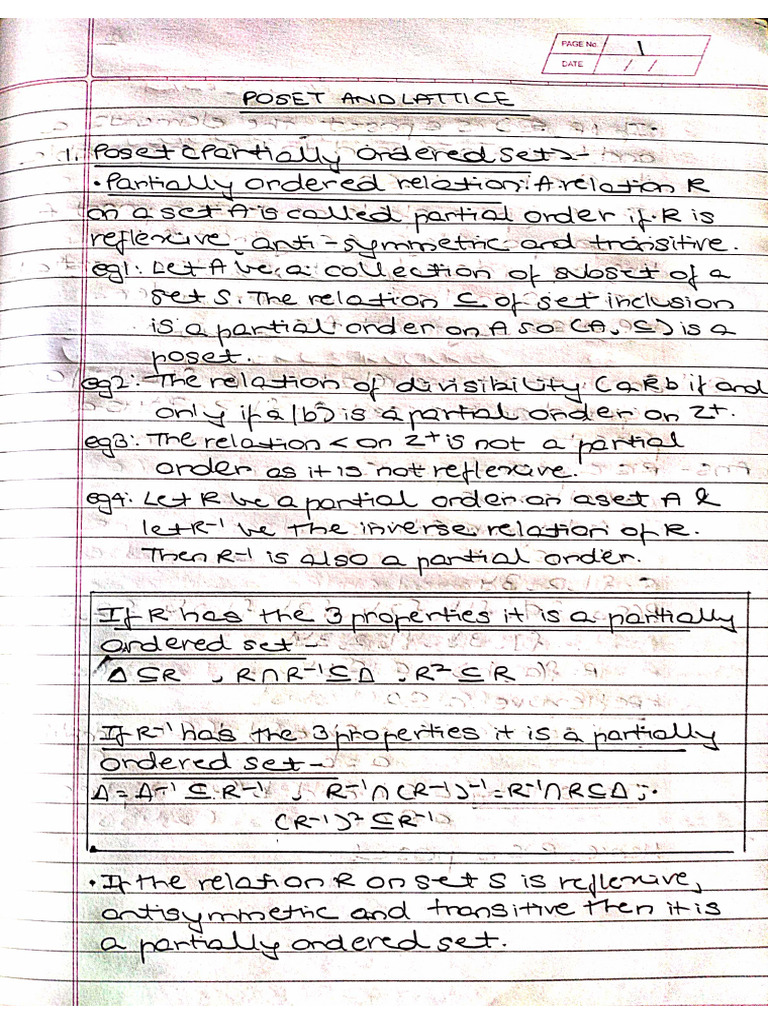 PAGE No. 1
DATE / /
POSET AND LATTICE
1. Poset (Partially Ordered Set) :-
• Partially ordered relation: A relation R
on a set A is called partial order if R is
reflexive, anti-symmetric and transitive.
eg1: Let A be a collection of subset of a
set S. The relation ⊆ of set inclusion
is a partial order on A so (A, ⊆) is a
poset.
eg2: The relation of divisibility (aRb if and
only if a/b) is a partial order on Z+.
eg3: The relation < on Z+ is not a partial
order as it is not reflexive.
eg4: Let R be a partial order on a set A &
let R⁻¹ be the inverse relation of R.
Then R⁻¹ is also a partial order.
If R has the 3 properties it is a partially
ordered set -
Δ ⊆ R , R ∩ R⁻¹ ⊆ Δ , R² ⊆ R
If R⁻¹ has the 3 properties it is a partially
ordered set -
Δ = Δ⁻¹ ⊆ R⁻¹ , R⁻¹ ∩ (R⁻¹)⁻¹ = R⁻¹ ∩ R ⊆ Δ ;
(R⁻¹)² ⊆ R⁻¹
• If the relation R on set S is reflexive,
antisymmetric and transitive then it is
a partially ordered set.